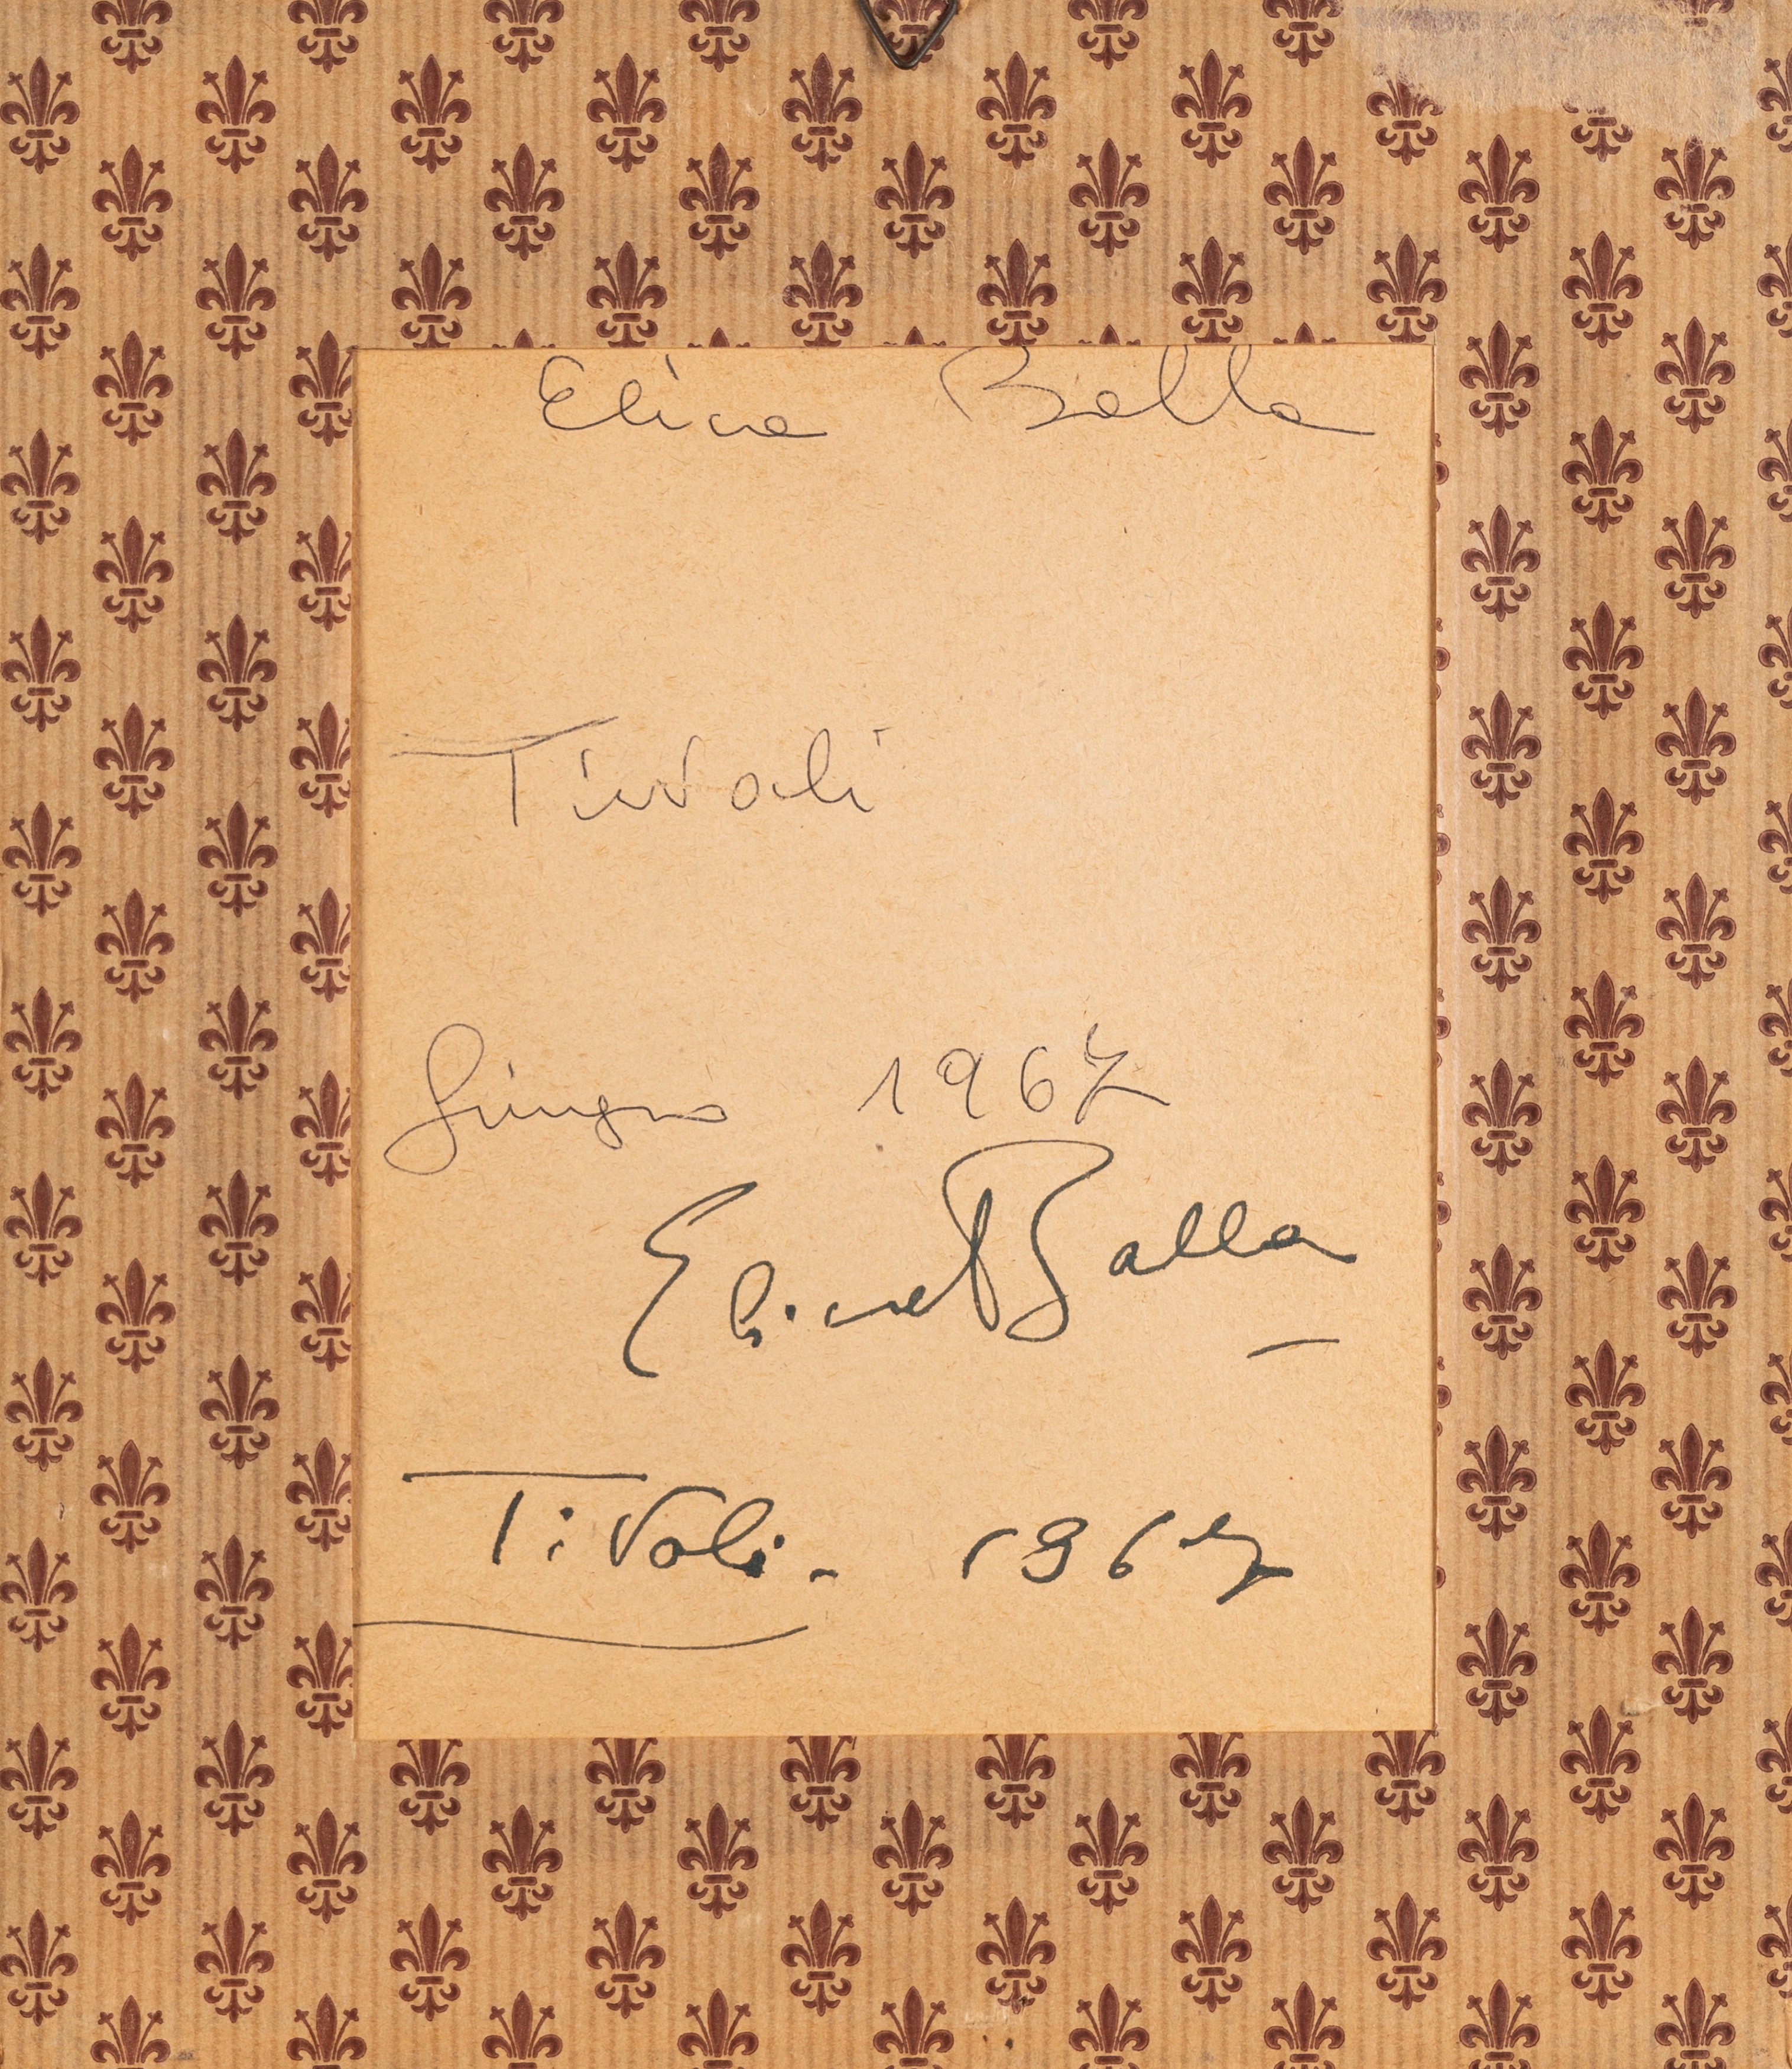 Elica Balla
Tivoli
Giugno 1967
Elica Balla
Tivoli - 1967